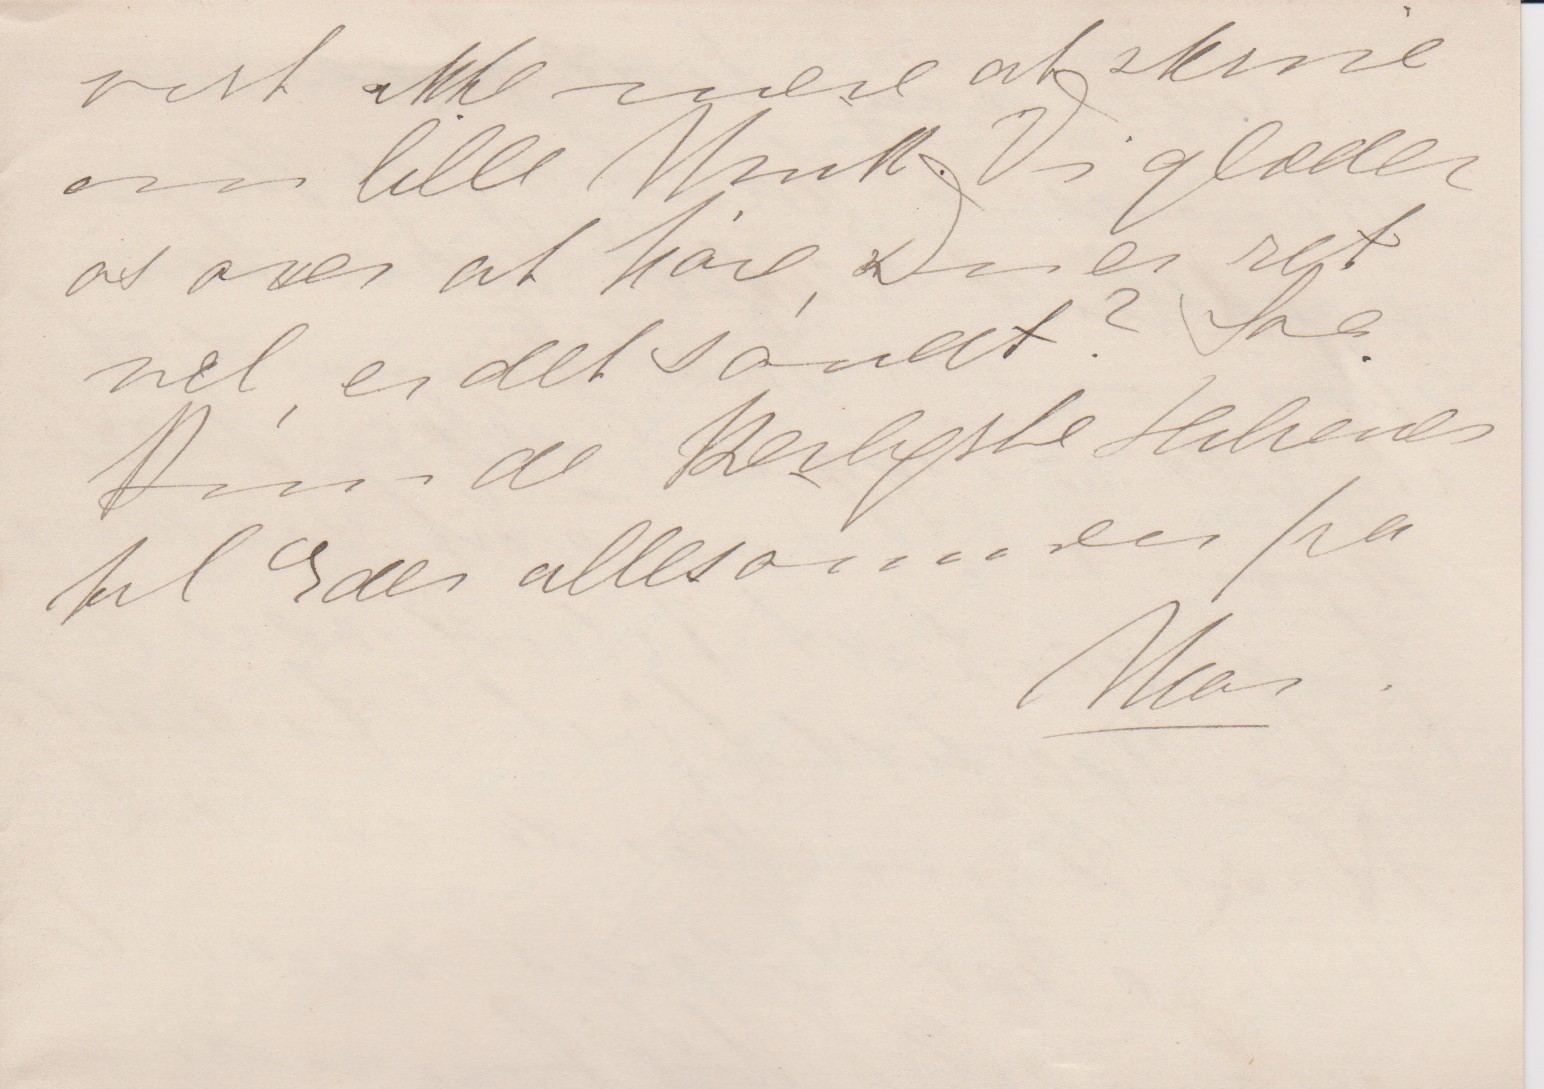 vist ikke mere at skrive
om lille Muk. Vi glæder
os over at høre, Du er ret
vel, er det sandt? Saa
Kun de kærligste Hilsener
til Eder allesammen fra
Mor.